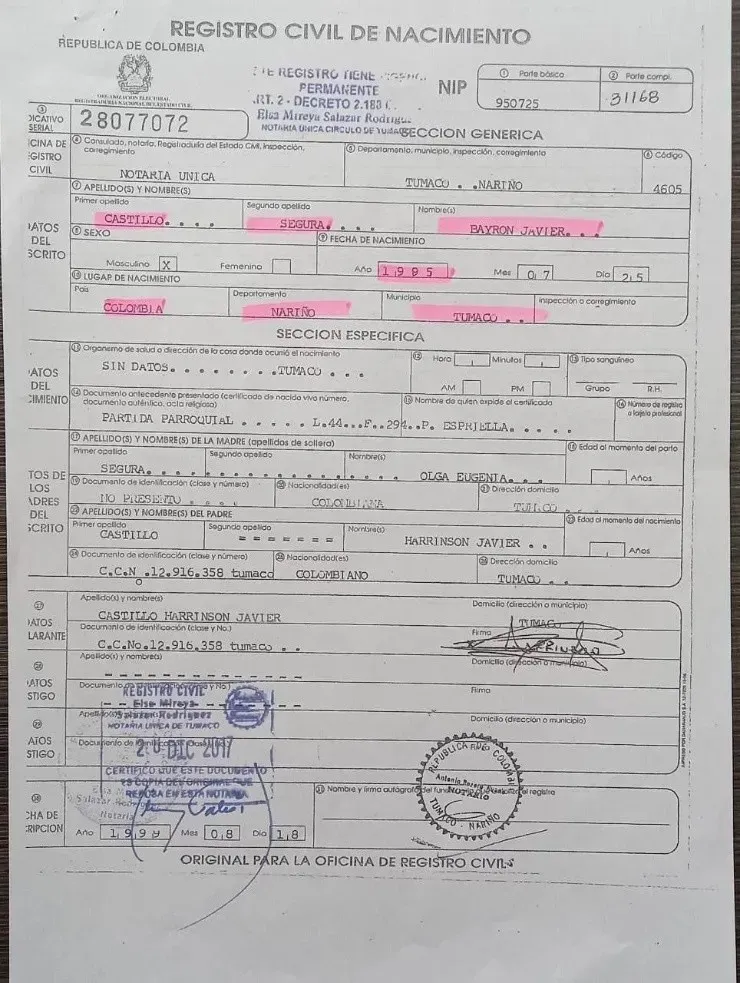 REGISTRO CIVIL DE NACIMIENTO
REPUBLICA DE COLOMBIA
ORGANIZACION ELECTORAL
REGISTRADURIA NACIONAL DEL ESTADO CIVIL
REGISTRO TIENE
PERMANENTE
ART. 2 - DECRETO 2.183
Elsa Mireya Salazar Rodrigu
NOTARIA UNICA CIRCULO DE TUMA
NIP
1 Parte básica
950725
2 Parte compl.
31168
3
DICATIVO
SERIAL
28077072
SECCION GENERICA
CINA DE
EGISTRO
CIVIL
4 Consulado, notaría, Registraduría del Estado Civil, inspección, corregimiento
NOTARIA UNICA
5 Departamento, municipio, inspección, corregimiento
TUMACO . .NARIÑO
6 Código
4605
7 APELLIDO(S) Y NOMBRE(S)
DATOS
DEL
SCRITO
Primer apellido
CASTILLO. . . .
Segundo apellido
SEGURA. . . .
Nombre(s)
BAYRON JAVIER. . .
8 SEXO
Masculino X
Femenino
9 FECHA DE NACIMIENTO
Año 1995
Mes 07
Día 25
10 LUGAR DE NACIMIENTO
País
COLOMBIA
Departamento
NARIÑO
Municipio
TUMACO . .
Inspección o corregimiento
SECCION ESPECIFICA
ATOS
DEL
CIMIENTO
11 Organismo de salud o dirección de la casa donde ocurrió el nacimiento
SIN DATOS. . . . . . . .TUMACO . . .
12 Hora
Minutos
AM
PM
13 Tipo sanguíneo
Grupo
R.H.
14 Documento antecedente presentado (certificado de nacido vivo número, documento auténtico, acta religiosa)
PARTIDA PARROQUIAL . . . . . L.44...F..294..P. ESPRIELLA. . . . .
15 Nombre de quien expide el certificado
16 Número de registro o tarjeta profesional
TOS DE
LOS
ADRES
DEL
SCRITO
17 APELLIDO(S) Y NOMBRE(S) DE LA MADRE (apellidos de soltera)
Primer apellido
SEGURA. . . . . . . . . . . . . . .
Segundo apellido
Nombre(s)
OLGA EUGENIA. . .
18 Edad al momento del parto
Años
19 Documento de identificación (clase y número)
NO PRESENTO . . . .
20 Nacionalidad(es)
COLOMBIANA
21 Dirección domicilio
TUMACO
22 APELLIDO(S) Y NOMBRE(S) DEL PADRE
Primer apellido
CASTILLO
Segundo apellido
= = = = = = =
Nombre(s)
HARRINSON JAVIER . .
23 Edad al momento del nacimiento
Años
24 Documento de identificación (clase y número)
C.C.No.12.916.358 tumaco
Nacionalidad(es)
COLOMBIANO
Dirección domicilio
TUMACO . . .
27
ATOS
LARANTE
Apellido(s) y nombre(s)
CASTILLO HARRINSON JAVIER
Domicilio (dirección o municipio)
TUMACO
Documento de identificación (clase y No.)
C.C.No.12.916.358 tumaco . .
Firma
28
ATOS
STIGO
Apellido(s) y nombre(s)
Domicilio (dirección o municipio)
Documento de identificación (clase y No.)
Firma
29
ATOS
STIGO
Apellido(s) y nombre(s)
Domicilio (dirección o municipio)
Documento de identificación (clase y No.)
REGISTRO CIVIL
Elsa Mireya
Salazar Rodriguez
NOTARIA UNICA DE TUMACO
20 DIC 2017
CERTIFICO QUE ESTE DOCUMENTO
ES COPIA DEL ORIGINAL QUE
REPOSA EN ESTA NOTARIA
Salazar Rod
Notaria
REPUBLICA DE COLOMBIA
NOTARIO
TUMACO - NARIÑO
30
CHA DE
RIPCION
Año 1999
Mes 08
Día 18
31 Nombre y firma autógrafa del funcionario registro
ORIGINAL PARA LA OFICINA DE REGISTRO CIVIL